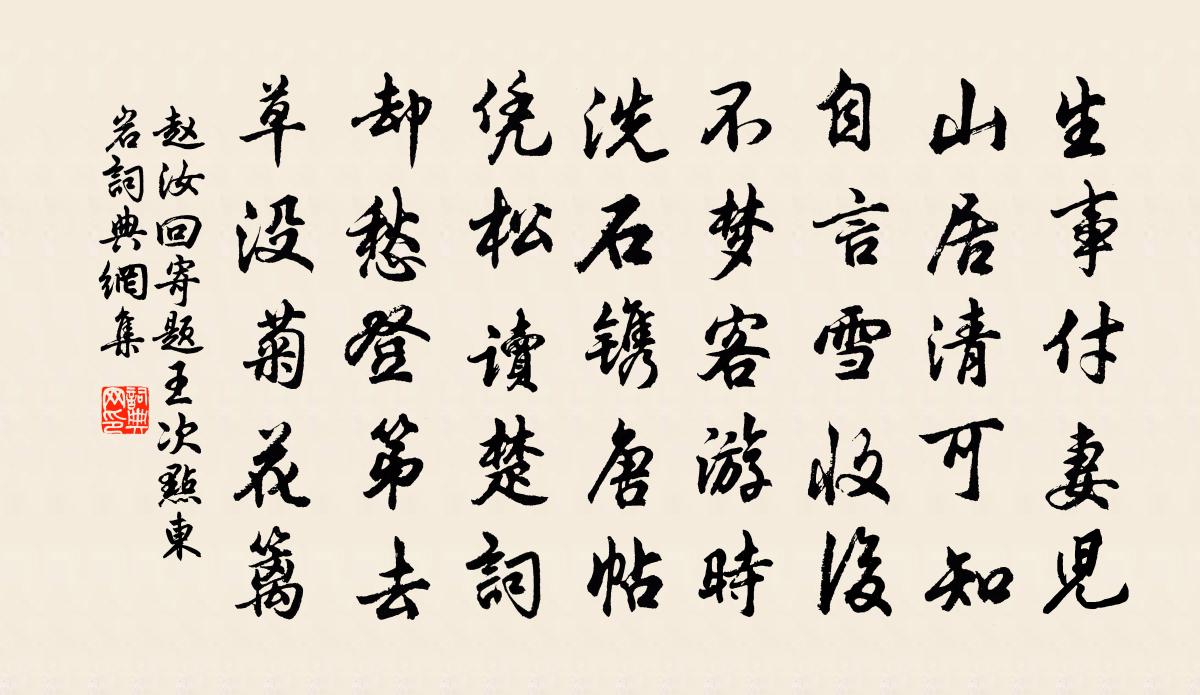 生事付妻児
山居清可知
自言雪收後
不梦客游時
洗石镌唐帖
凭松讀楚詞
却愁登第去
草没菊花篱
赵汝回寄题王次點東
岩詞典網集
詞典
网印